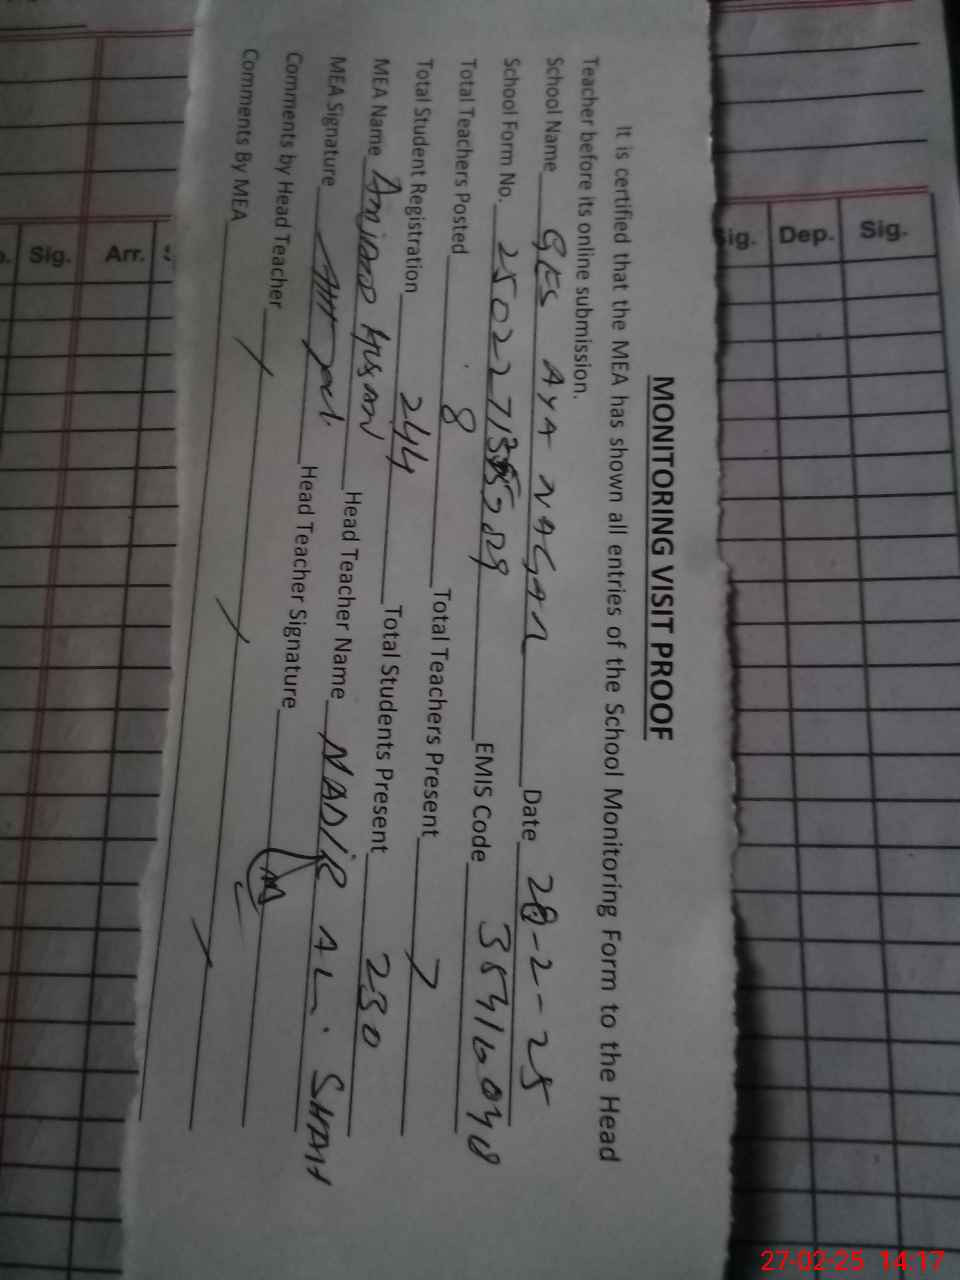 MONITORING VISIT PROOF
It is certified that the MEA has shown all entries of the School Monitoring Form to the Head
Teacher before its online submission.
School Name GES AYA NAGAR Date 28-2-25
School Form No. EMIS Code
Total Teachers Posted 8 Total Teachers Present 7
Total Student Registration 244 Total Students Present 230
MEA Name Head Teacher Name NADIR ALI SHAH
MEA Signature Head Teacher Signature
Comments by Head Teacher
Comments By MEA
Sig. Dep. Sig.
Sig. Arr.
27-02-25 14:17